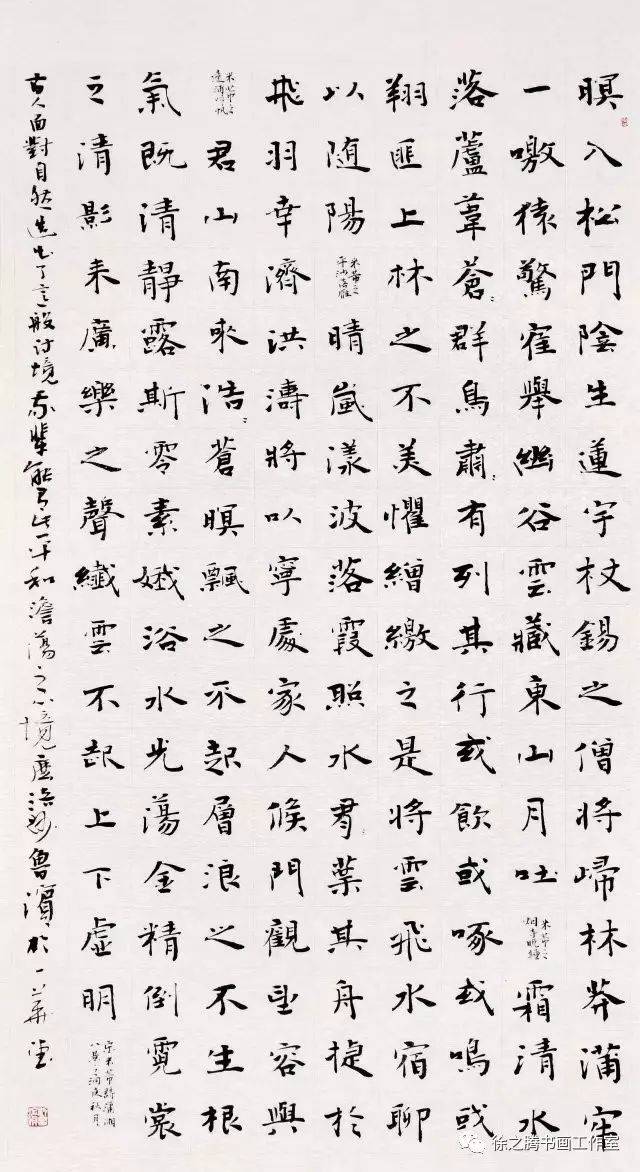 暝入松門陰生蓮宇杖錫之僧將歸林莽蒲牢
一噭猿驚隺舉幽谷雲藏東山月吐
米芾之
烟寺晚鐘
霜清水
落蘆葦蒼〻群鳥肅〻有列其行或飲或啄或鳴或
翔匪上林之不美懼繒繳之是將雲飛水宿聊
以随陽
米芾之
平沙落雁
晴嵐漾波落霞照水有葉其舟捷於
飛羽幸濟洪濤將以寧處家人候門觀望容與
米芾之
遠浦歸帆
君山南來浩〻蒼暝飄之不起層浪之不生根
氣既清靜露斯零素娥浴水光蕩金精倒霓裳
之清影来廣樂之聲纖雲不起上下虛明
宋米芾詩瀟湘
八景之洞庭秋月
古人面對自然造化般詩境我輩能有此平和澹蕩之心境魯濱於一草堂
徐之腾书画工作室